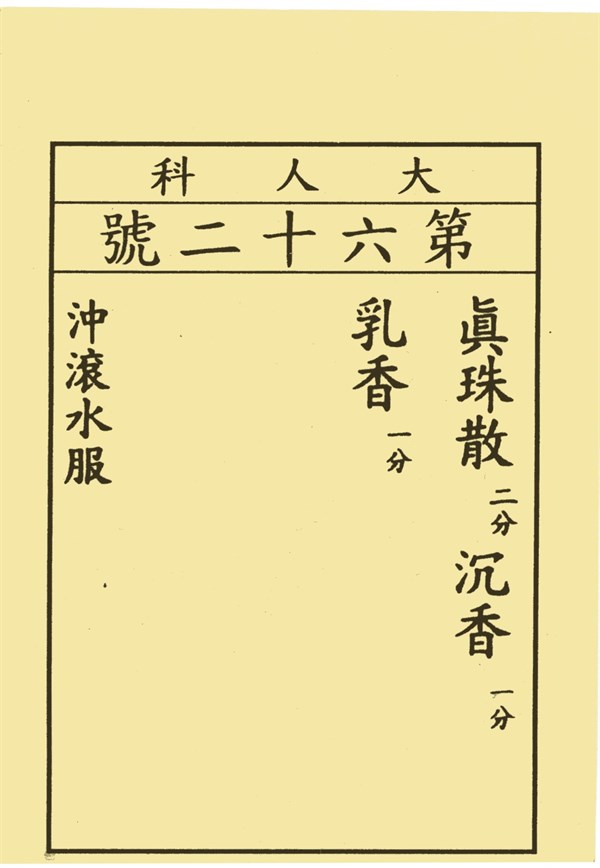 大人科
第六十二號
眞珠散二分沉香一分
乳香一分
沖滾水服